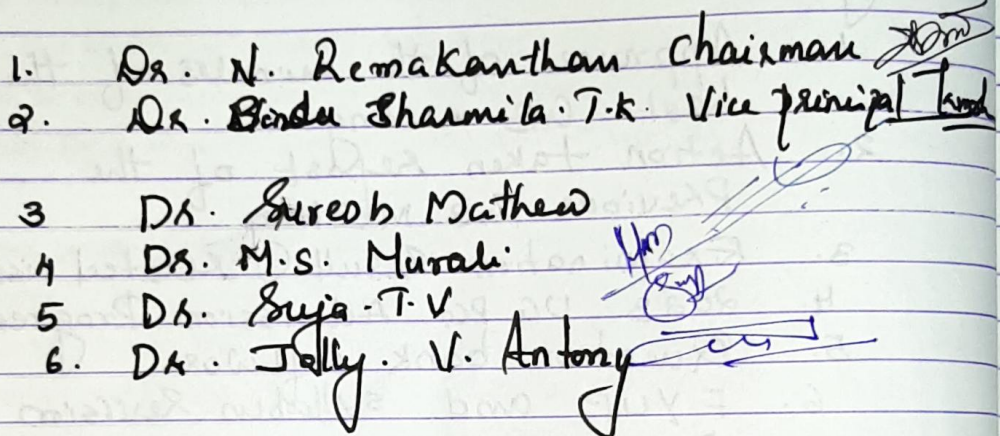 1. Dr. N. Remakanthan Chairman
2. Dr. Bindu Sharmila. T.K. Vice principal
3 Dr. Suresh Mathew
4 Dr. M.S. Murali
5 Dr. Suja. T.V
6. Dr. Jolly. V. Antony